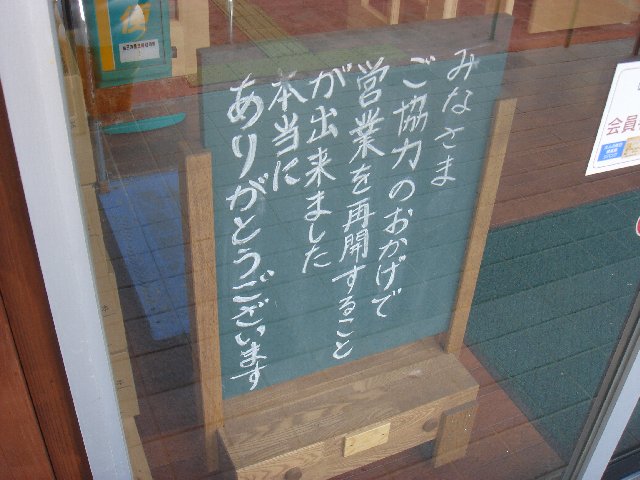 みなさま
ご協力のおかげで
営業を再開すること
が出来ました
本当に
ありがとうございます
会員